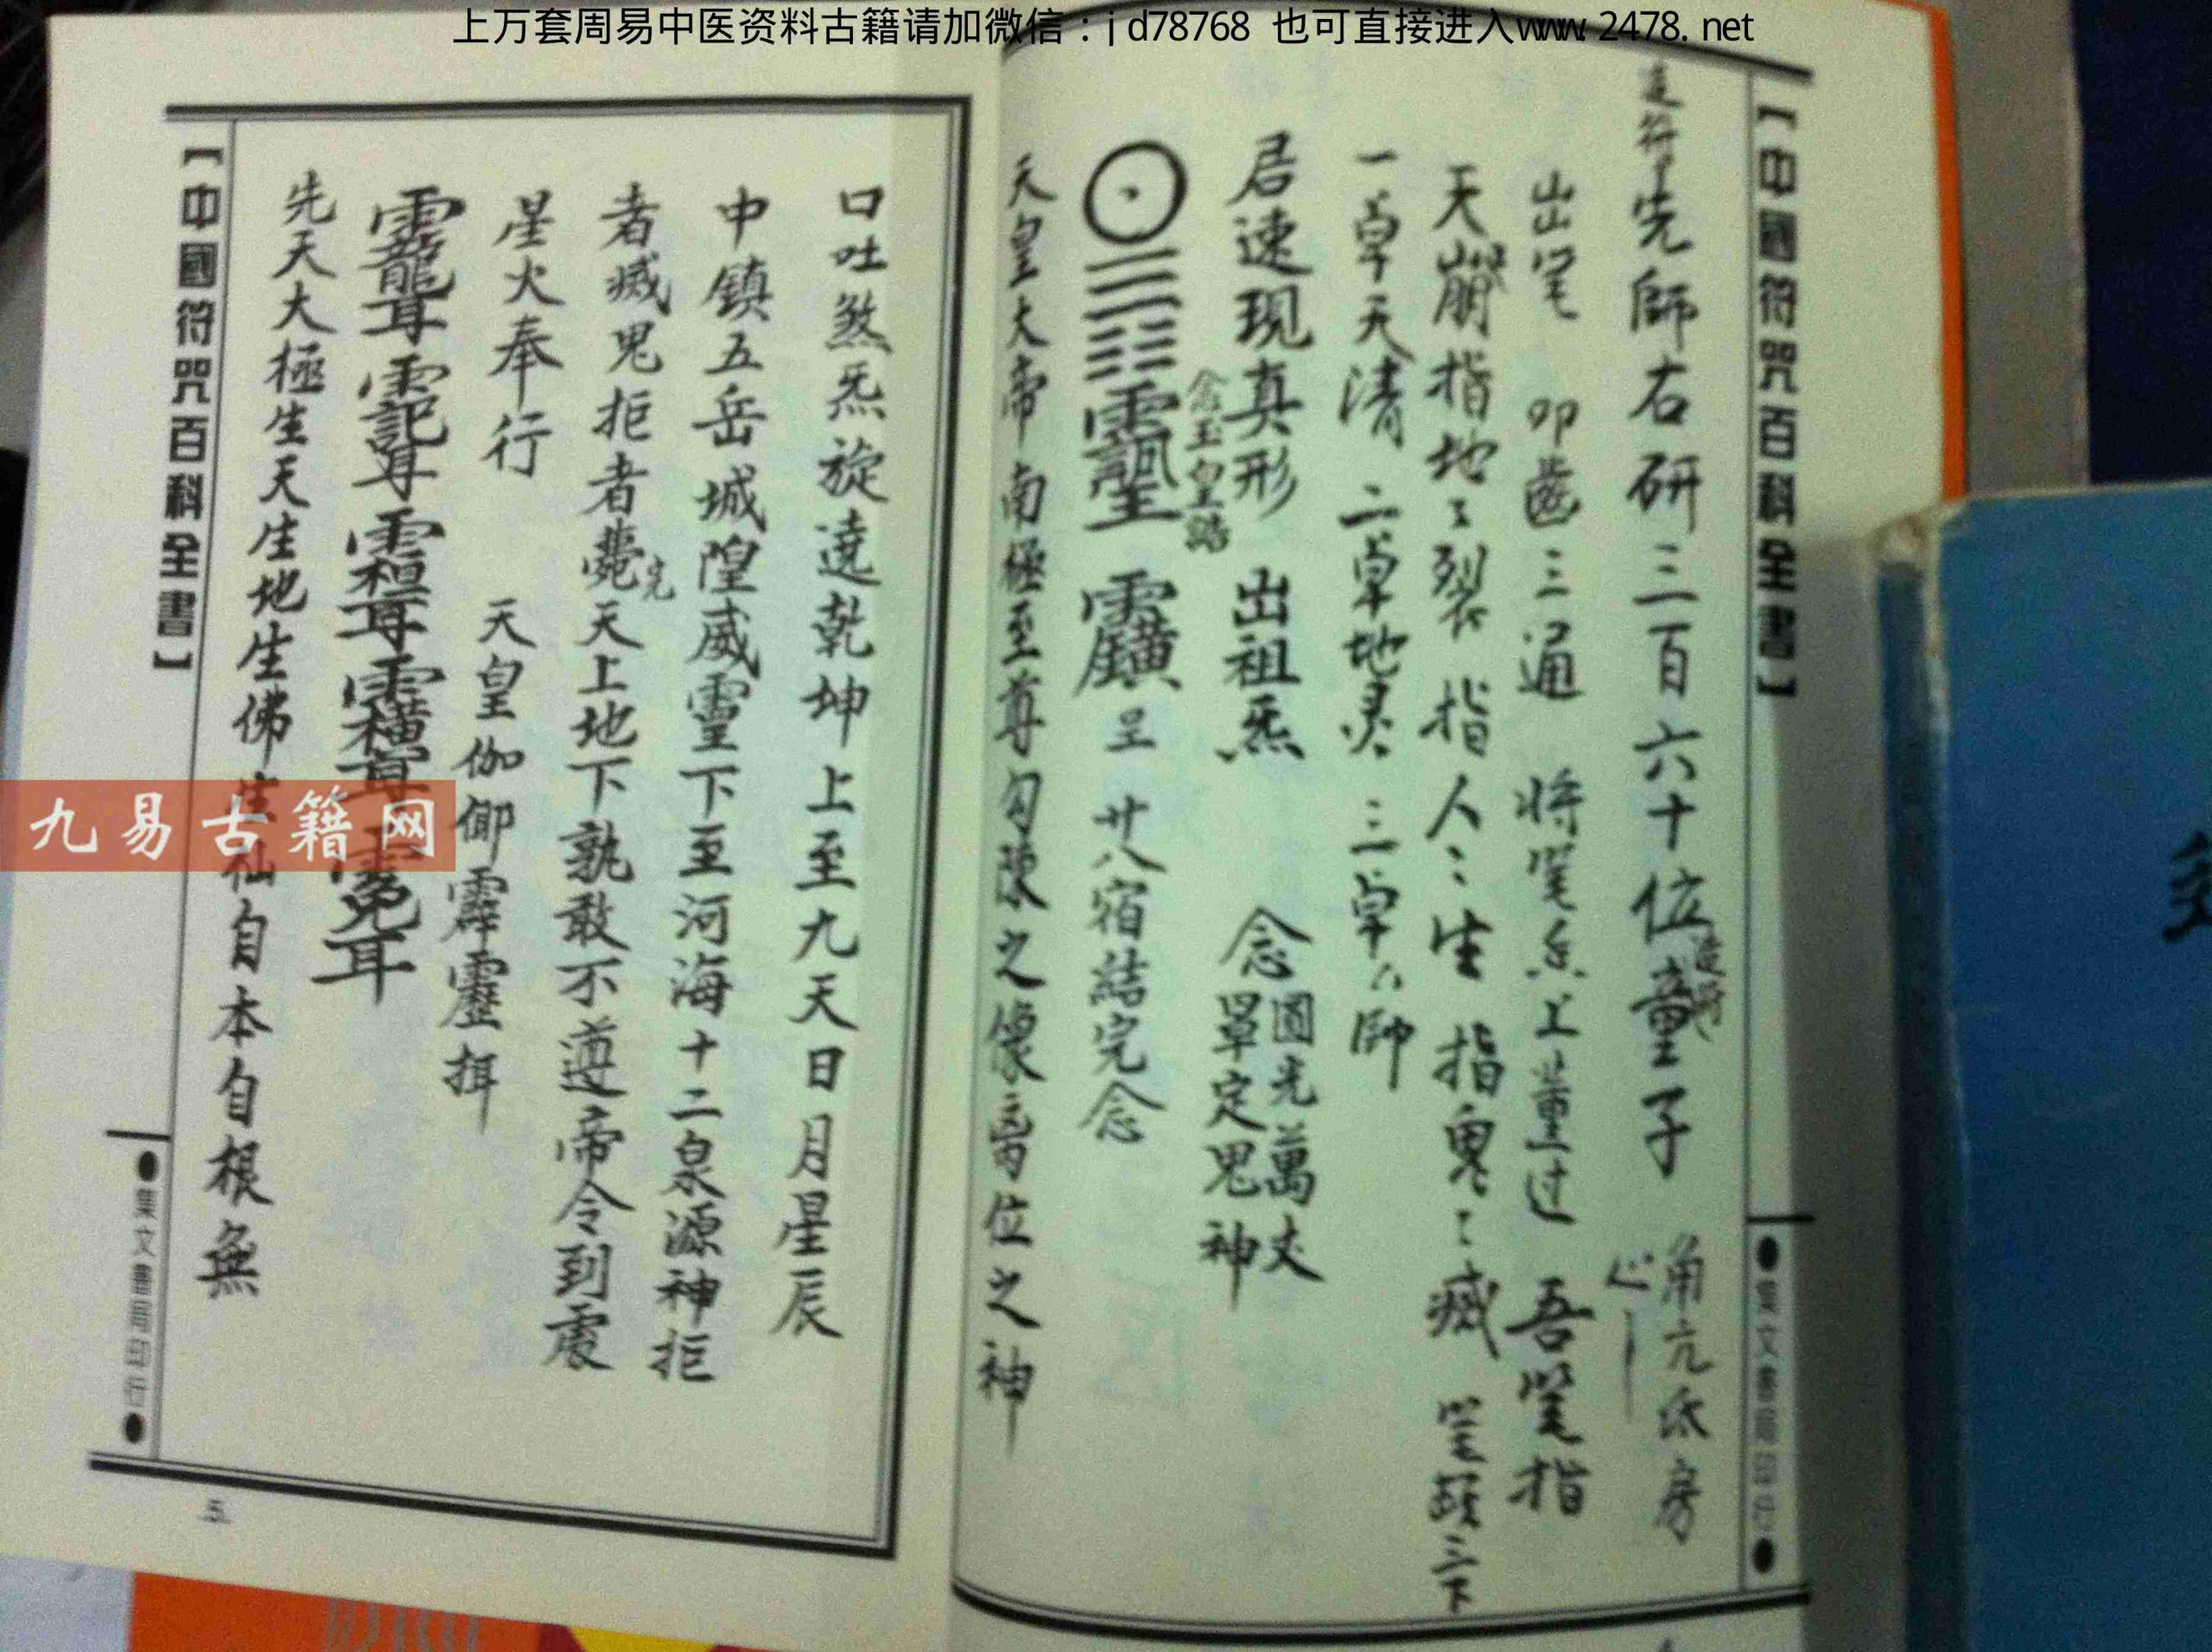 上万套周易中医资料古籍请加微信：jd78768 也可直接进入www.2478.net
【中國符咒百科全書】
●集文書局印行●
先師右研三百六十位童子 角亢氐房
出笔 叩齒三通 将笔 上董过 吾笔指
天崩指地〻裂 指人〻生 指鬼〻滅 笔 三下
一卓天清 二卓地灵 三卓 師
居速現真形 出祖炁 念圓光萬丈罩定鬼神
念玉皇誥
☉☰☷ 廿八宿結完念
天皇大帝南極至尊勾陳之像 位之神
口吐煞炁旋遶乾坤上至九天日月星辰
中鎮五岳城隍威靈下至河海十二泉源神拒
者滅鬼拒者斃完天上地下孰敢不遵帝令到震
星火奉行 天皇 霹靂揖
先天大極生天生地生佛生仙自本自根無
【中國符咒百科全書】
●集文書局印行●
五
九易古籍网